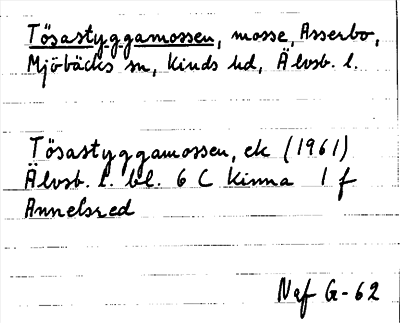 Tösastyggamossen, mosse, Asserbo,
Mjöbäcks sn, Kinds hd, Älvsb. l.
Tösastyggamossen, ek (1961)
Älvsb. l. bl. 6 C Kinna 1 f
Annelsred
Naf G-62